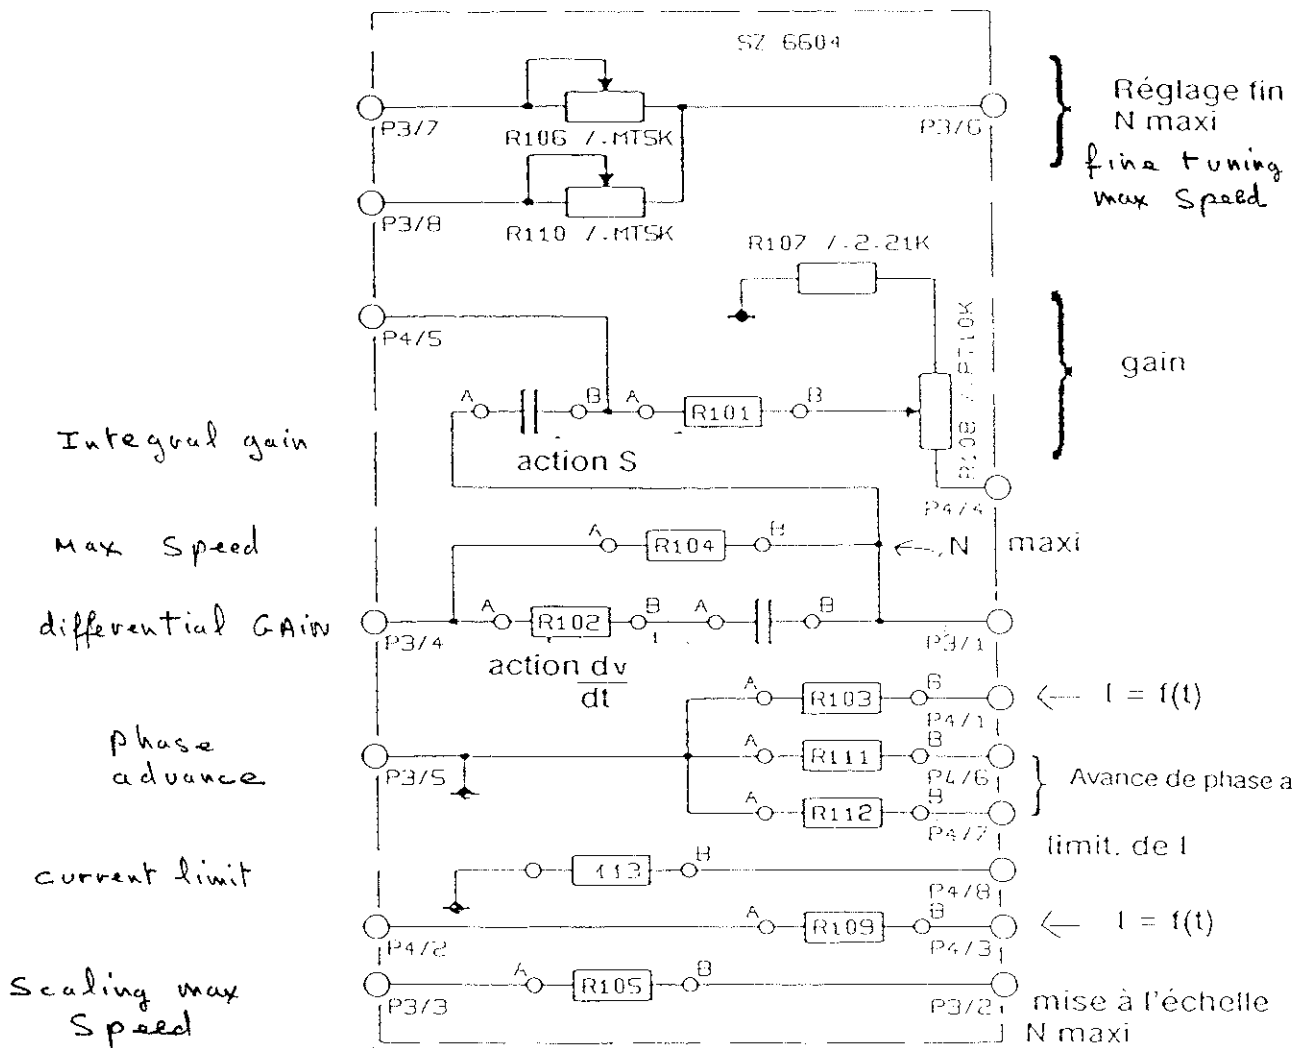 SZ 6604
P3/7
R106 /.MT5K
P3/6
Réglage fin
N maxi
fine tuning
max Speed
P3/8
R110 /.MT5K
R107 /.2.21K
P4/5
R108 /.PT10K
gain
A
B
A
R101
B
Integral gain
action S
P4/4
Max Speed
A
R104
B
N maxi
differential GAIN
P3/4
A
R102
B
A
B
P3/1
action dv
dt
A
R103
B
P4/1
I = f(t)
phase
advance
P3/5
A
R111
B
P4/6
Avance de phase a
A
R112
B
P4/7
limit. de I
current limit
113
B
P4/8
P4/2
A
R109
B
P4/3
I = f(t)
Scaling max
Speed
P3/3
A
R105
B
P3/2
mise à l'échelle
N maxi